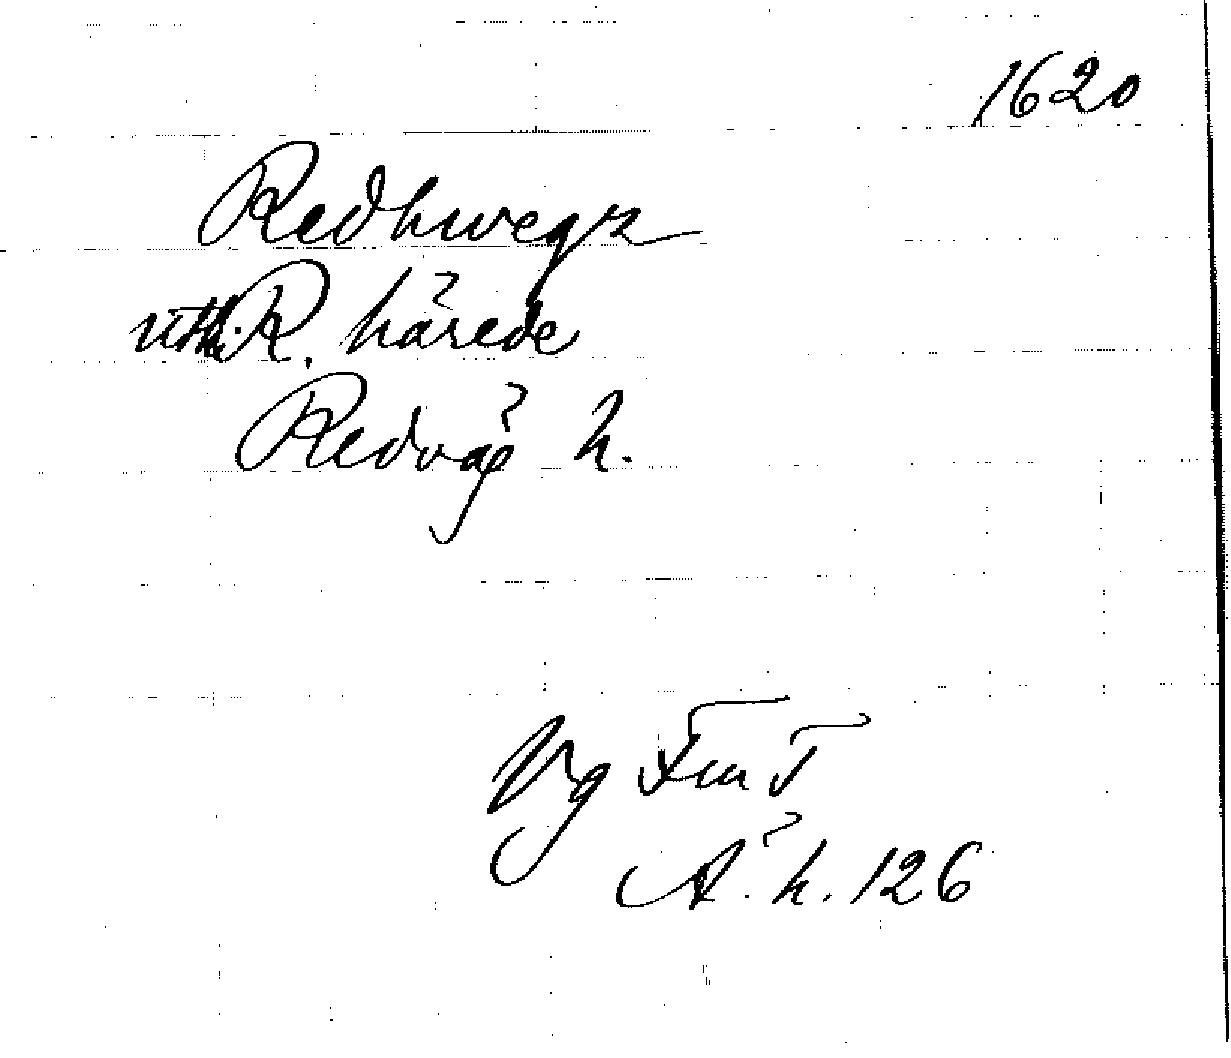 1620
Redhwegz
uthi R. härede
Redväg h.
Vg FmT
Ä. h. 126